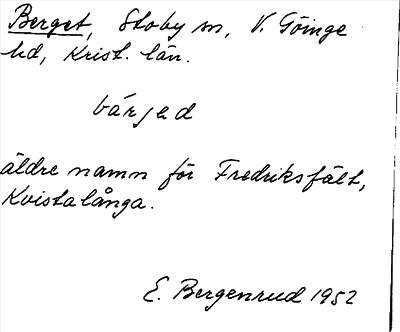 Berget, Stoby sn, V. Göinge
hd, Krist. län.
bárjed
äldre namn för Fredriksfält,
Kvistalånga.
E. Bergenrud 1952